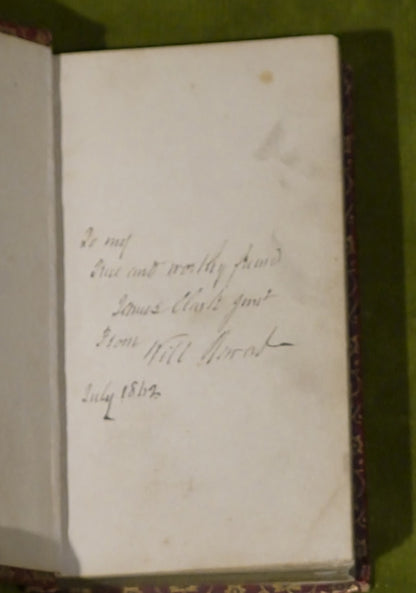 To my
True and worthy friend
James Clark
From Will
July 1842